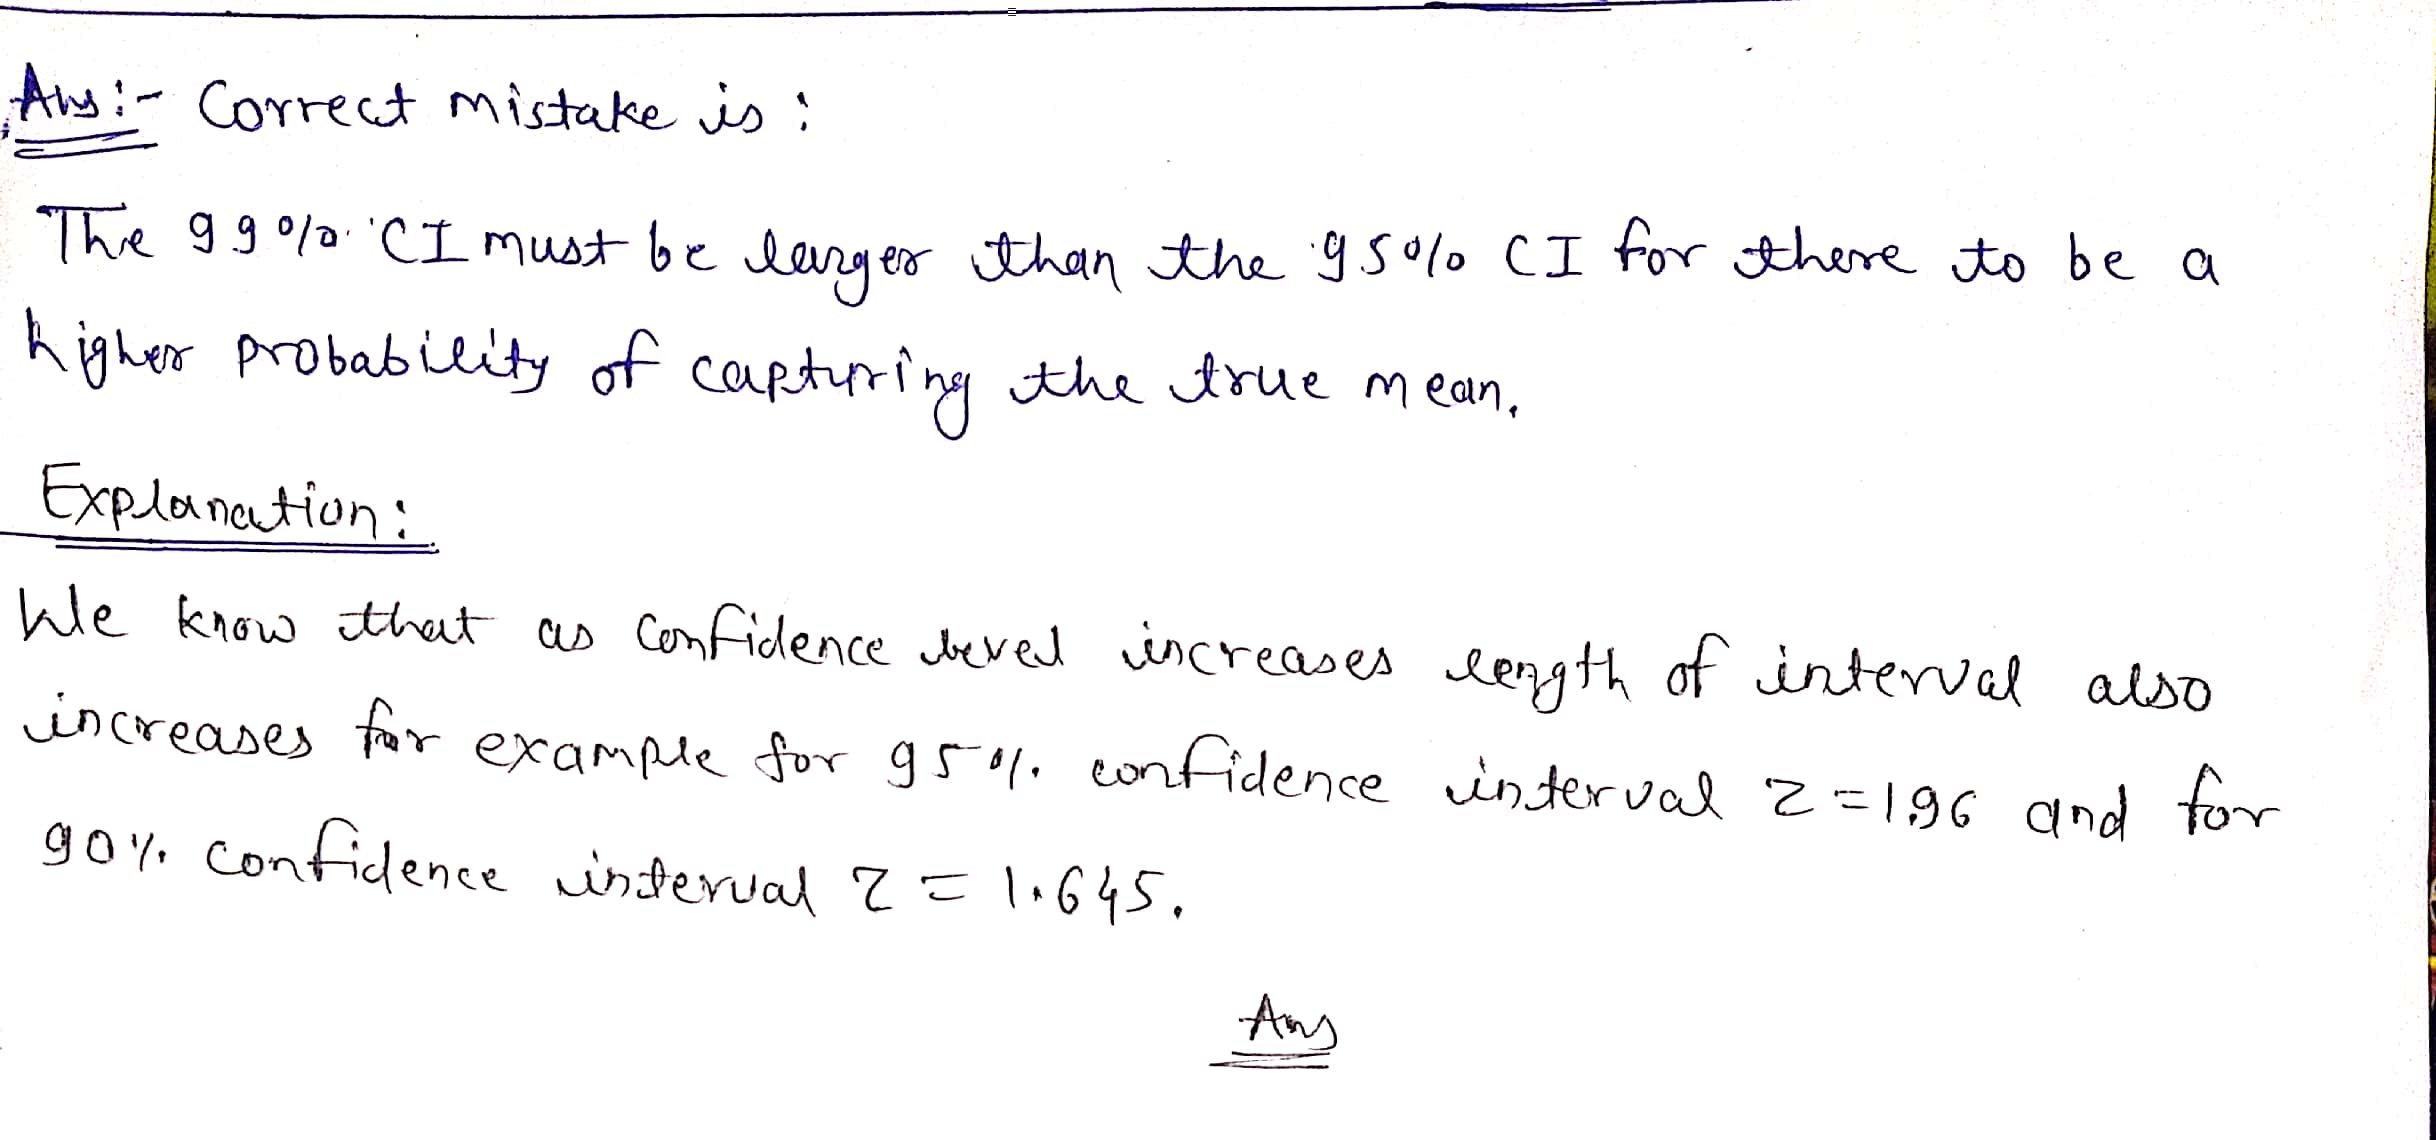 Ans:- Correct mistake is :
The 99% CI must be larger than the 95% CI for there to be a
higher probability of capturing the true mean.
Explanation:
We know that as confidence level increases length of interval also
increases for example for 95% confidence interval z = 1.96 and for
90% confidence interval z = 1.645.
Ans